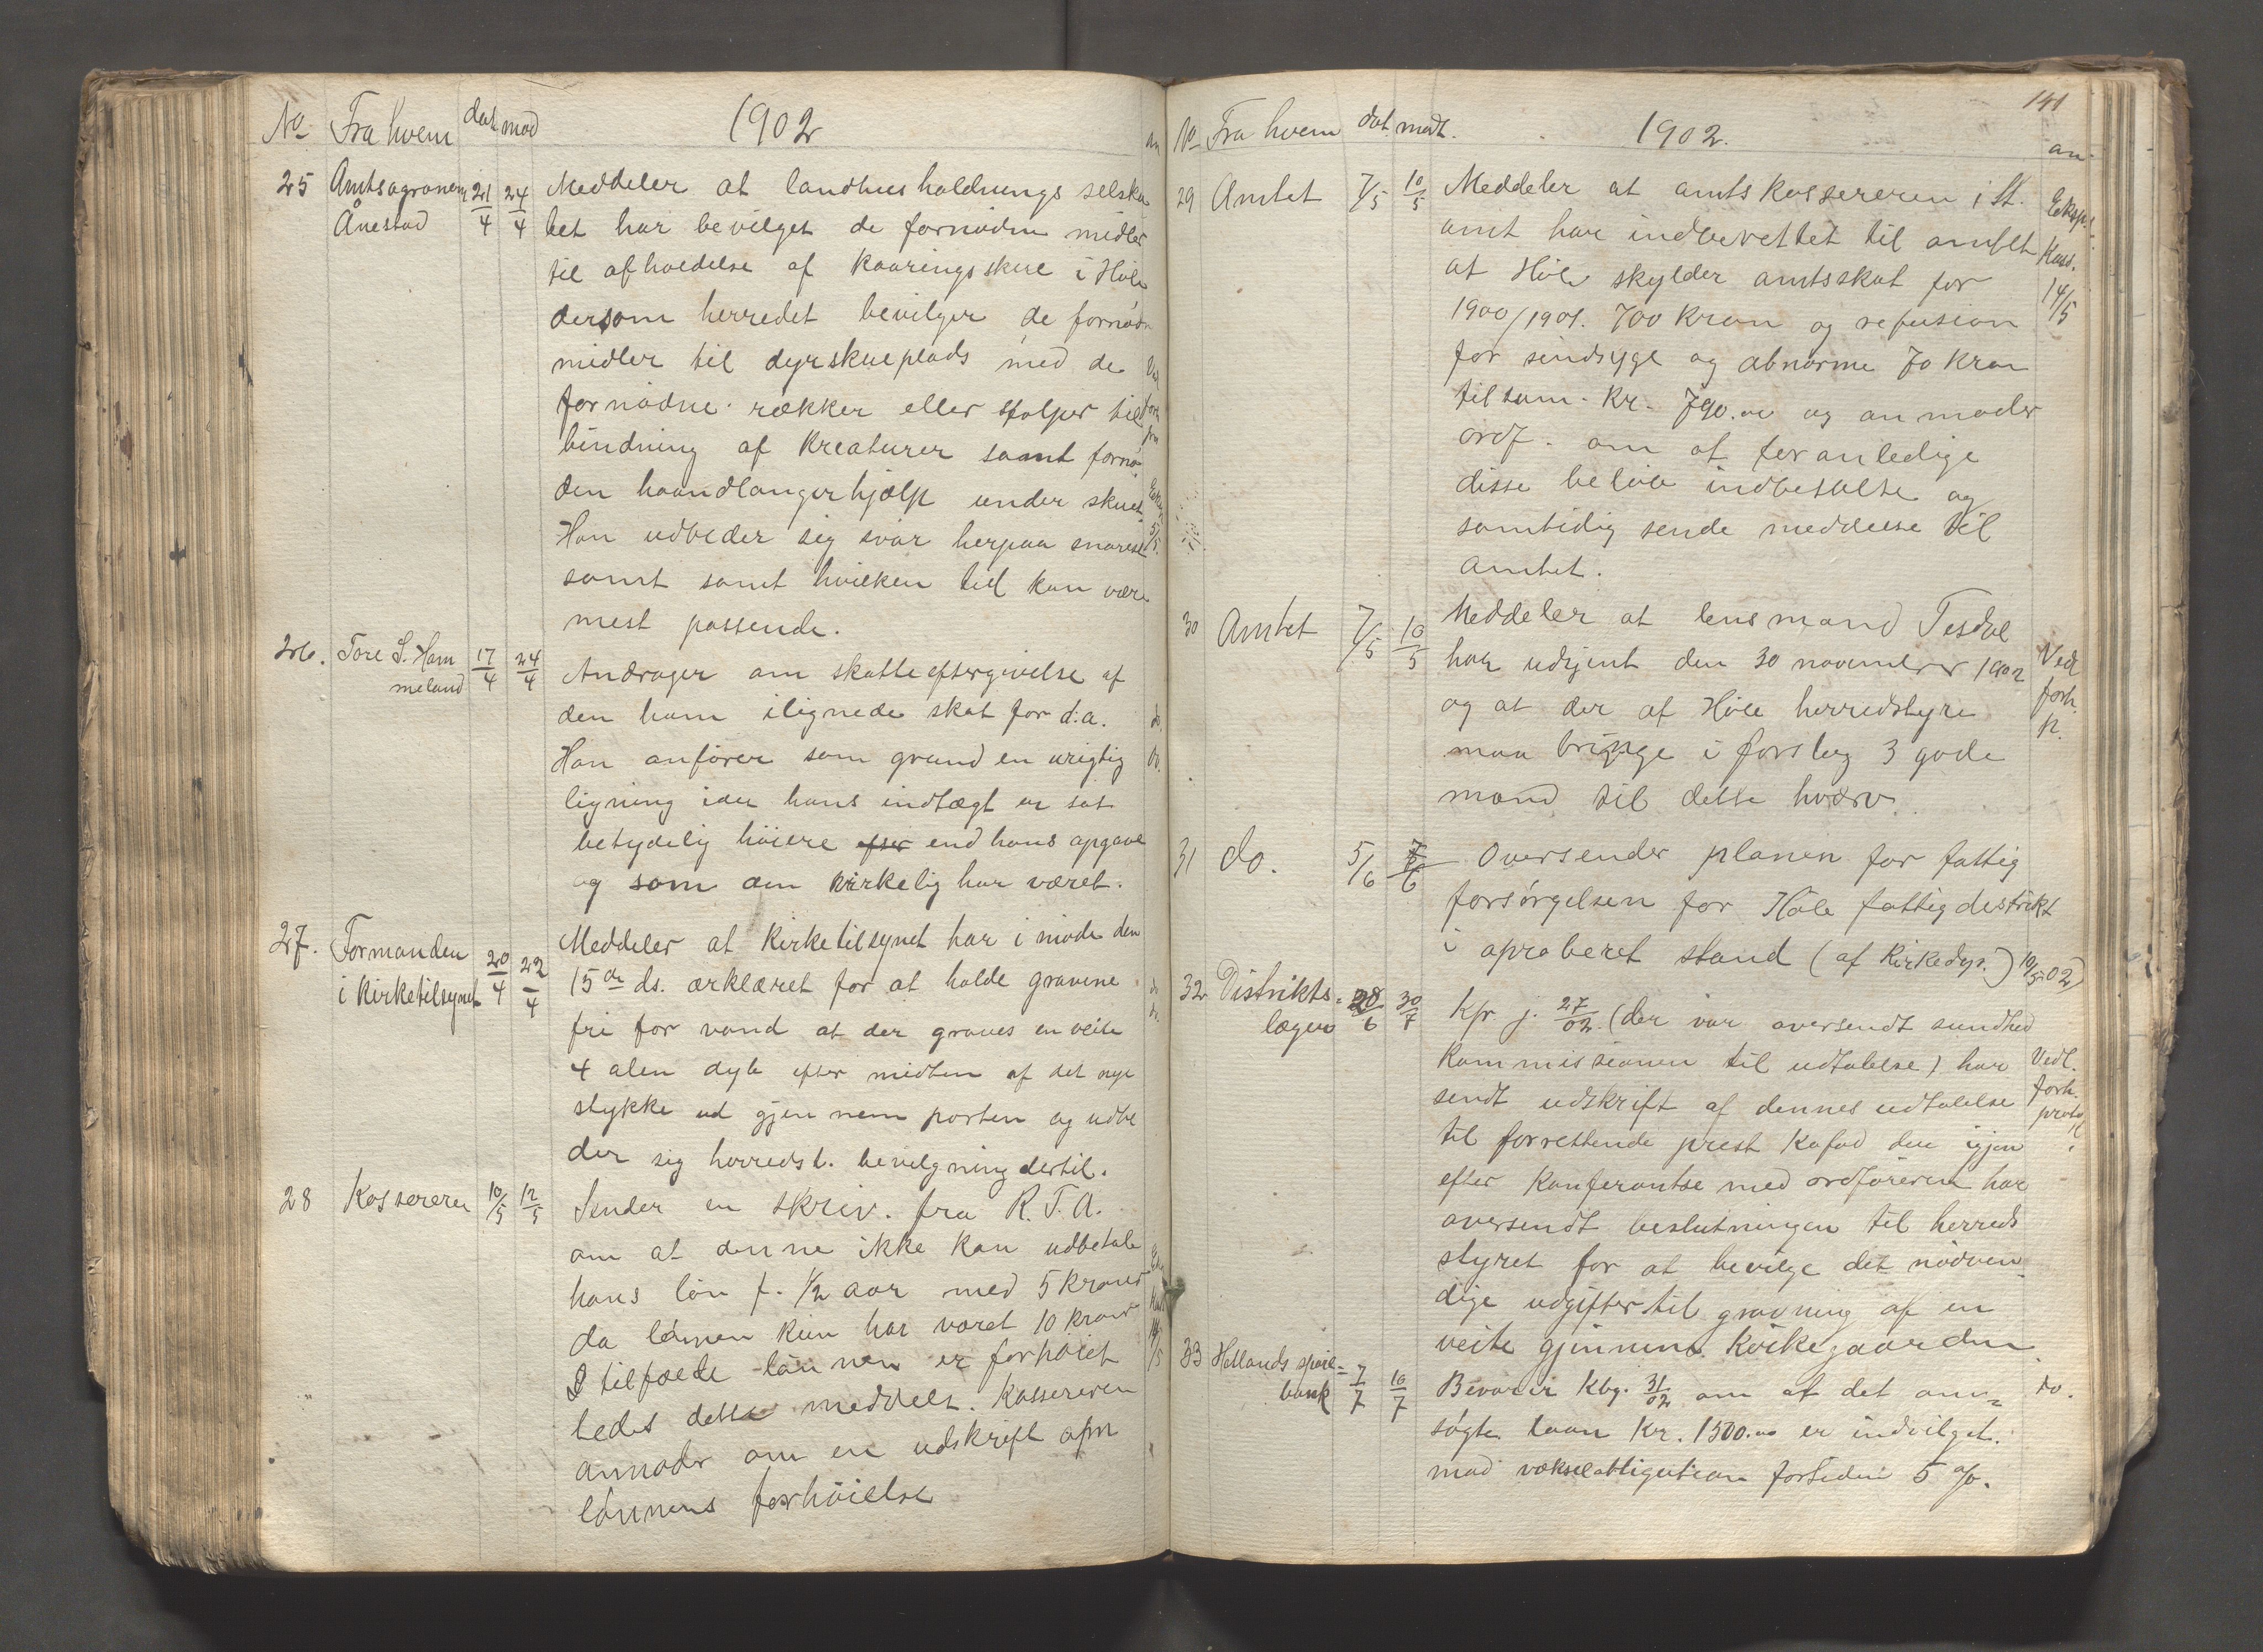 No Fra hvem dat mod 1902
25 Amtsagronom 21/4 24/4 Meddeler at landhusholdnings selska
Ånestad bet har bevilget de fornødne midler
til afholdelse af kaaringsskue i Høle
dersom herredet bevilger de fornødn
midler til dyrskueplads med de
fornødne rækker eller stolper til
binding af kreaturer samt fornø
den haandlangerhjælp under skuet
Han udbeder sig svar herpaa snarest 5/5
samt samt hvilken tid kan være
mest passende.
26. Tore S. Ham 17/4 24/4 Andrager om skatteeftergivelse af
meland den ham ilignede skat for d.a. do.
Han anfører som grund en urigtig do.
ligning idet hans indtægt er sat
betydelig høiere efter end hans opgave
og som den virkelig har været.
27. Formanden 20/4 22/4 Meddeler at kirketilsynet har i møde den
i kirketilsynet 15de ds. erklæret for at holde gravene
fri for vand at der graves en veite
4 alen dyb efter midten af det nye
stykke ud gjennem porten og udbe
der sig herredst. bevilgning dertil.
28 Kassereren 10/5 12/5 Sender en skriv. fra R.T.A.
om at denne ikke kan udbetale
hans løn f. 1/2 aar med 5 kroner
da lønnen kun har været 10 kroner
I tilfælde lønnen er forhøiet
bedes dette meddelt. Kassereren
anmoder om en udskrift om
lønnens forhøielse
141
No Fra hvem dat. modt. 1902. an
29 Amtet 7/5 10/5 Meddeler at amtskassereren i St. Eksp.
amt har indberettet til amtet Kass.
at Høle skylder amtsskat for 14/5
1900/1901. 700 kron og refusion
for sindsyge og abnorme 70 kron
tilsam. kr. 790.00 og anmoder
ordf. om at foranledige
disse beløb indbetalte og
samtidig sende meddelse til
amtet.
30 Amtet 7/5 10/5 Meddeler at lensmand Tesdal
har udtjent den 30 november 1902 Ved
og at der af Høle herredstyre forh.
maa bringe i forslag 3 gode p.
mænd til dette hværv.
31 do. 5/6 7/6 Oversender planen for fattig
forsørgelsen for Høle fattigdistrikt
i aproberet stand (af Kirkedep.) 10/5 02)
32 Distrikts- 28/6 30/7 Kpr j. 27/02. (der var oversendt sundhed
lægen kommissionen til udtalelse) har Vedl.
sendt udskrift af dennes udtalelse forh.
til forrettende prest Kafod den igjen
efter konferantse med ordføreren har
oversendt beslutningen til herreds
styret for at bevilge det nødven
dige udgifter til gravning af en
veite gjennem kirkegaarden
33 Hetlands spare- 7/7 10/7 Bevarer Kbg. 31/02 om at det ann= do.
bank søgte laan Kr. 1500.00 er indvilget.
mod vekselobligation fortiden 5 %.